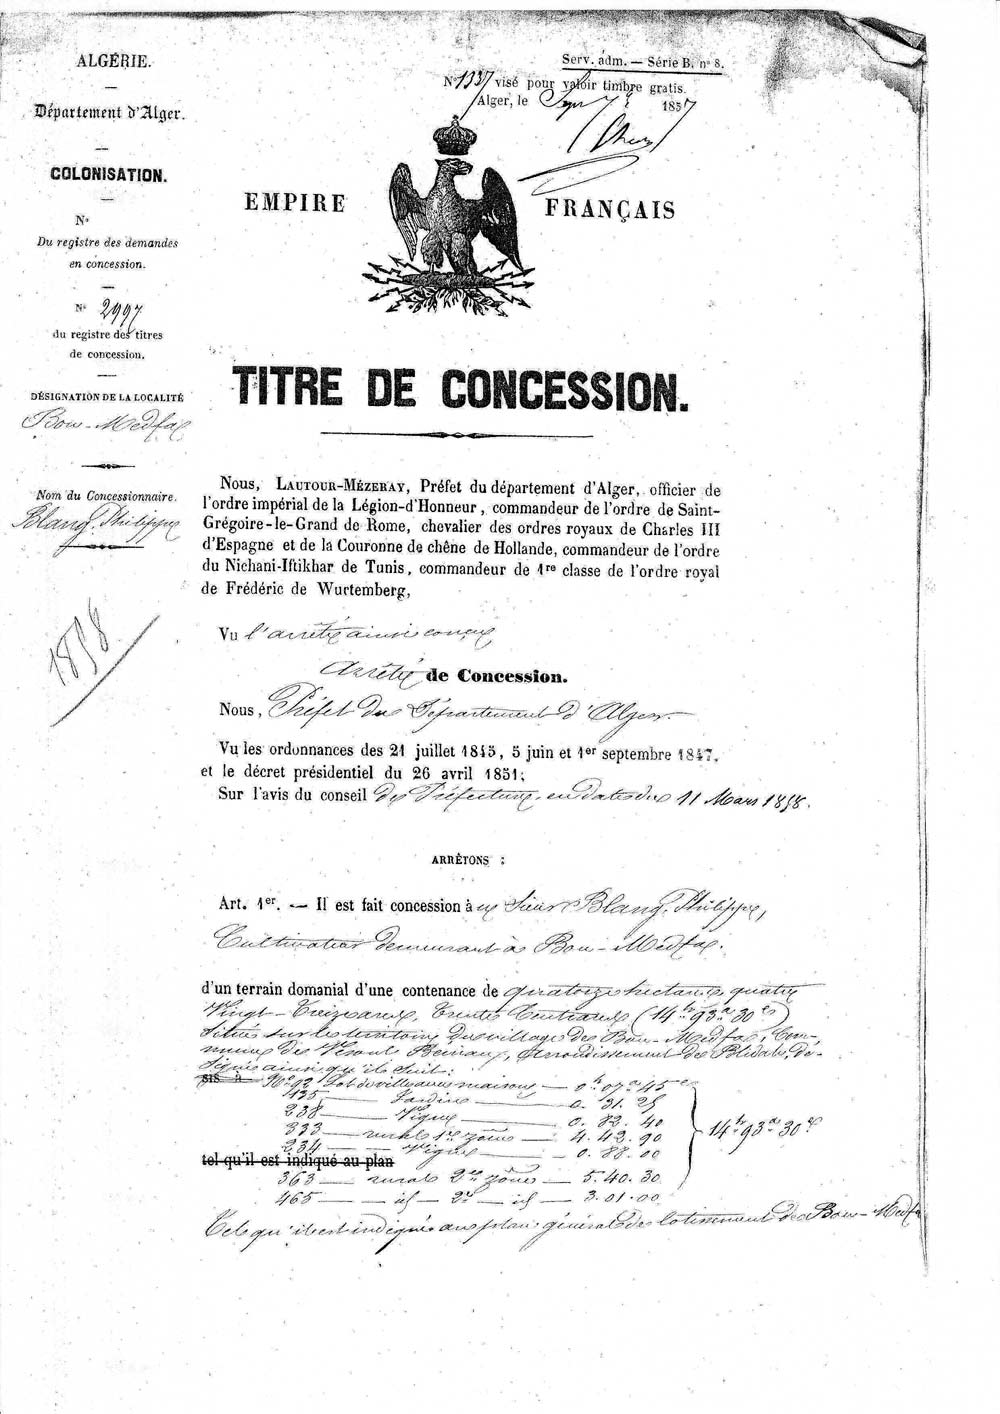 ALGÉRIE.
Département d'Alger.
COLONISATION.
N°
Du registre des demandes
en concession.
N° 2997
du registre des titres
de concession.
DÉSIGNATION DE LA LOCALITÉ
Bou-Medfa
Nom du Concessionnaire.
Blanq. Philippe
1858
Serv. adm. — Série B. n° 8.
N° 1337 visé pour valoir timbre gratis.
Alger, le 1857
EMPIRE FRANÇAIS
TITRE DE CONCESSION.
Nous, LAUTOUR-MÉZERAY, Préfet du département d'Alger, officier de
l'ordre impérial de la Légion-d'Honneur, commandeur de l'ordre de Saint-
Grégoire-le-Grand de Rome, chevalier des ordres royaux de Charles III
d'Espagne et de la Couronne de chêne de Hollande, commandeur de l'ordre
du Nichani-Iftikhar de Tunis, commandeur de 1re classe de l'ordre royal
de Frédéric de Wurtemberg,
Vu l'arrêté ainsi conçu
Arrêté de Concession.
Nous, Préfet du Département d'Alger.
Vu les ordonnances des 21 juillet 1845, 5 juin et 1er septembre 1847,
et le décret présidentiel du 26 avril 1851;
Sur l'avis du conseil de Préfecture, en date du 11 Mars 1858.
ARRÊTONS :
Art. 1er. — Il est fait concession à u Sieur Blanq. Philippe,
Cultivateur demeurant à Bou-Medfa.
d'un terrain domanial d'une contenance de quatorze hectares quatre
Vingt-Treize ares, Trente Centiares (14h 93a 30c)
Situés sur le territoire du village de Bou-Medfa, Com-
mune de Vesoul Benian, arrondissement de Blidah, dé-
signé ainsi qu'il suit:
sis à N° 92 Lot de ville avec maison — 0h 07a 45c
135 — Jardin — 0. 31. 25
238 — Vigne — 0. 82. 40
333 — rural 1re zône — 4. 42. 90
234 — Vigne — 0. 88. 00
14h 93a 30c
tel qu'il est indiqué au plan
363 — rural 2me zône — 5. 40. 30
465 — id — 2e — id — 3. 01. 00
Tel qu'il est indiqué au plan général de lotissement de Bou-Medfa